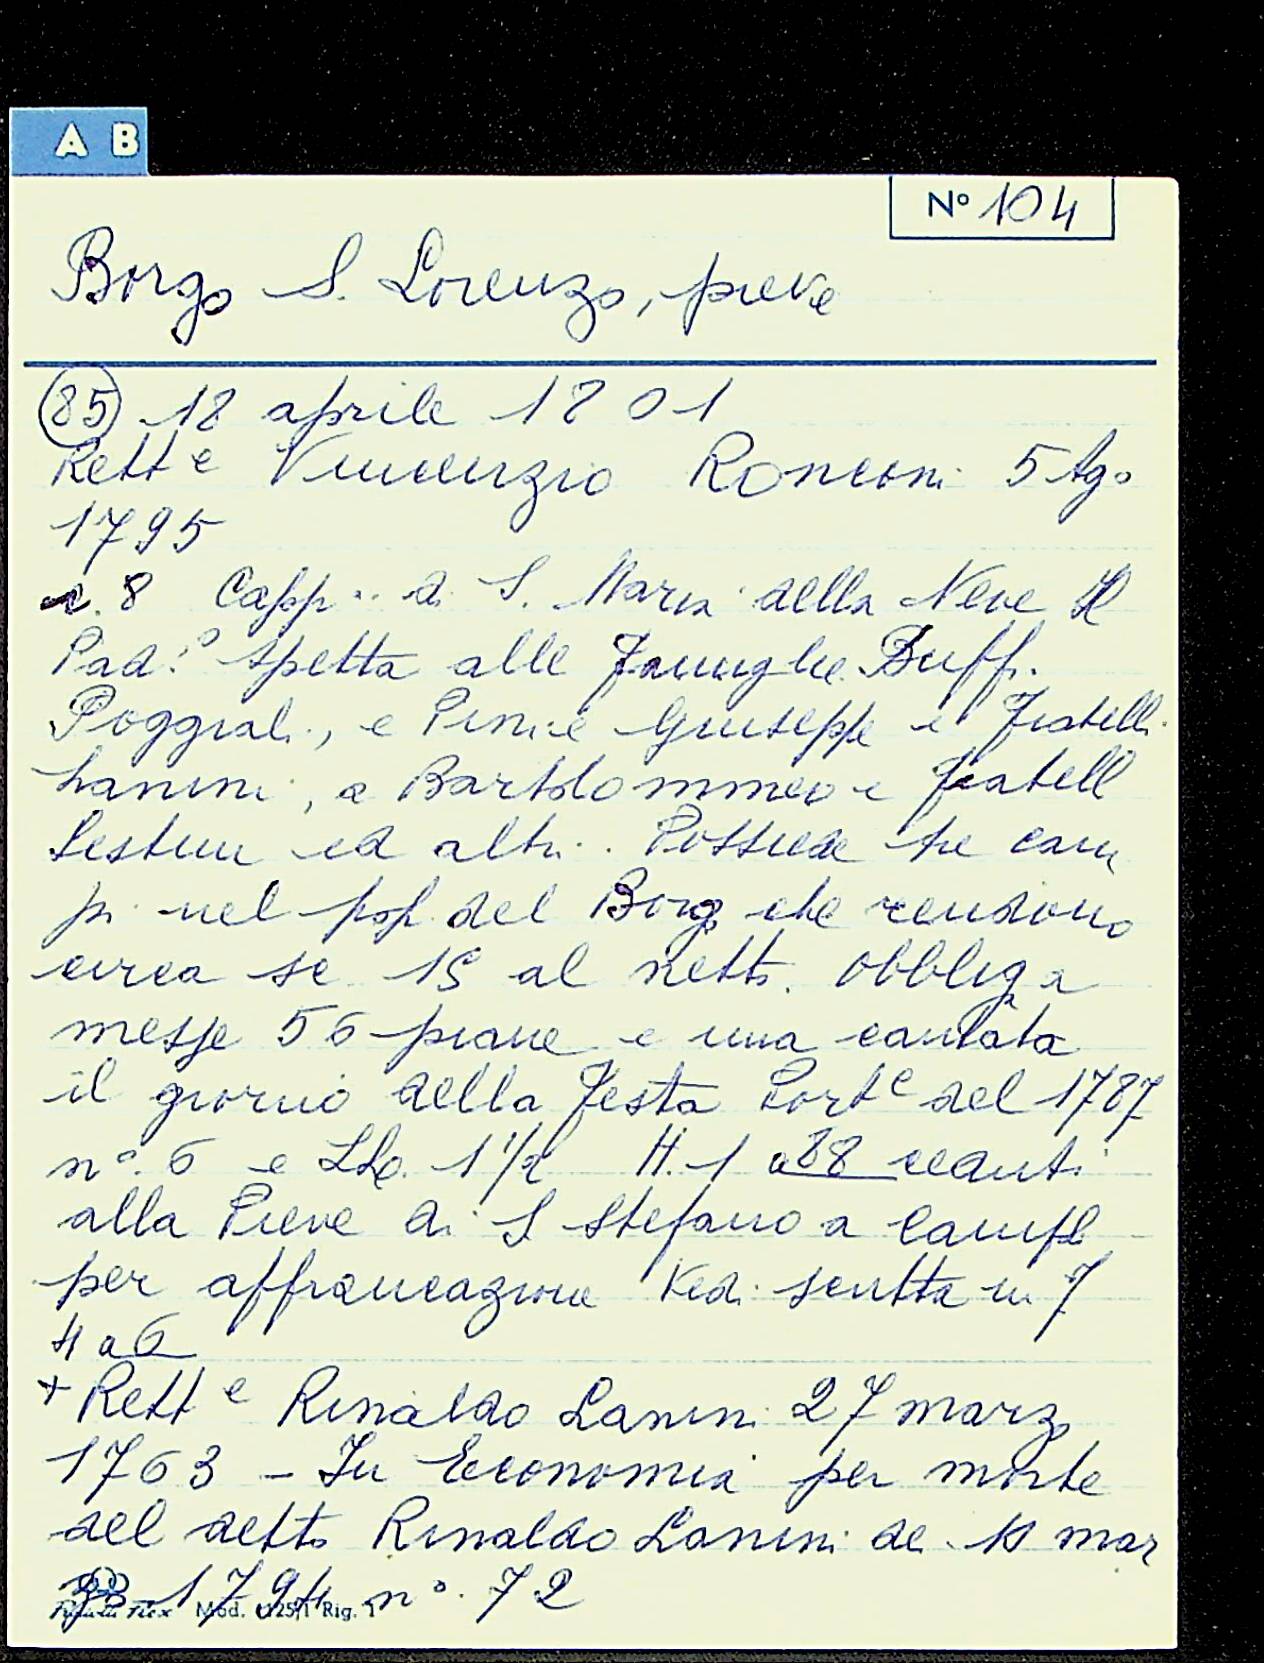 A B
N° 104
Borgo S. Lorenzo, pieve
85 18 aprile 1801
Rett e Vincenzio Ronconi 5 Ago
1795
n. 8 Capp.. di S. Maria della Neve Il
Pad.° spetta alle famiglie Buffi.
Poggiali, e Pini e Giuseppe e Fratelli
Lanini, a Bartolommeo e fratell
Sestini ed altri. Possiede tre cam
pi nel pop. del Borgo che rendono
circa sc 15 al netto. Obbliga
messe 56 piane e una cantata
il giorno della festa Port e del 1787
n°. 6 e 1 1/2 H. 1 a 88 scanti
alla Pieve di S Stefano a Campi
per affrancazione Vedi scritta in 7
4 a 6
+ Rett e Rinaldo Lanini 27 marzo
1763 - In Economia per morte
del detto Rinaldo Lanini de 10 mar
zo 1794 n°. 72
Mod. Rig. 1